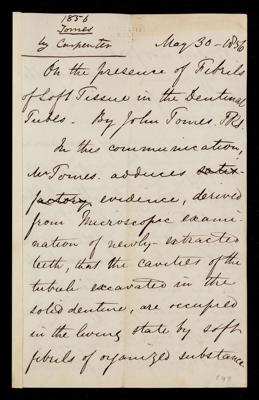 1856
Tomes
by Carpenter
May 30 - 1856
On the presence of Fibrils
of Soft Tissue in the Dentinal
Tubes. - By John Tomes. FRS.
In this communication,
Mr Tomes. adduces satis-
factory evidence, derived
from Microscopic exami-
nation of newly-extracted
teeth, that the cavities of the
tubuli excavated in the
solid dentine, are occupied
in the living state by soft
fibrils of organized substance